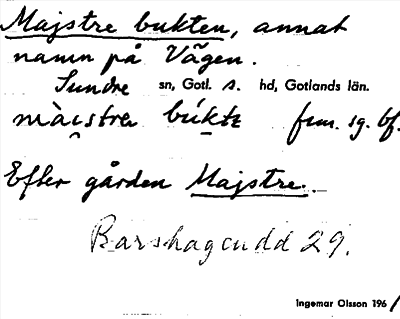 Majstre bukten, annat
namn på Vägen.
Sundre sn, Gotl. s. hd, Gotlands län.
màistrer búkte fem. sg. bf.
Efter gården Majstre.
Barshagcudd 29.
Ingemar Olsson 1961